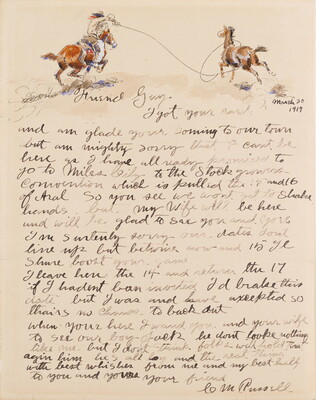 Friend Guy.
March 20
1919
I got your card
and am glade your coming to our town
but am mighty sorry that I cant be
here as I have all ready promised to
go to Miles City to the Stock growers
Convention which is pulled the 15 and 16
of April So you see we wont get to Shake
hands but my Wife will be here
and will be glad to see you and
I'm surtenly sorry our dates dont
line up but between now and 15 Il
Shure boost your game
I leave here the 14 and return the 17
if I hadent ban invited I'd brake this
date but I was and have axepted so
thairs no chance to back out
when your here I want you and your wife
to see our boy Jack he dont looke nothing
like me but I dont think hold
agin him hes all so and the real thing
with best whishes from me and my best half
to you and yours your friend
C M Russell